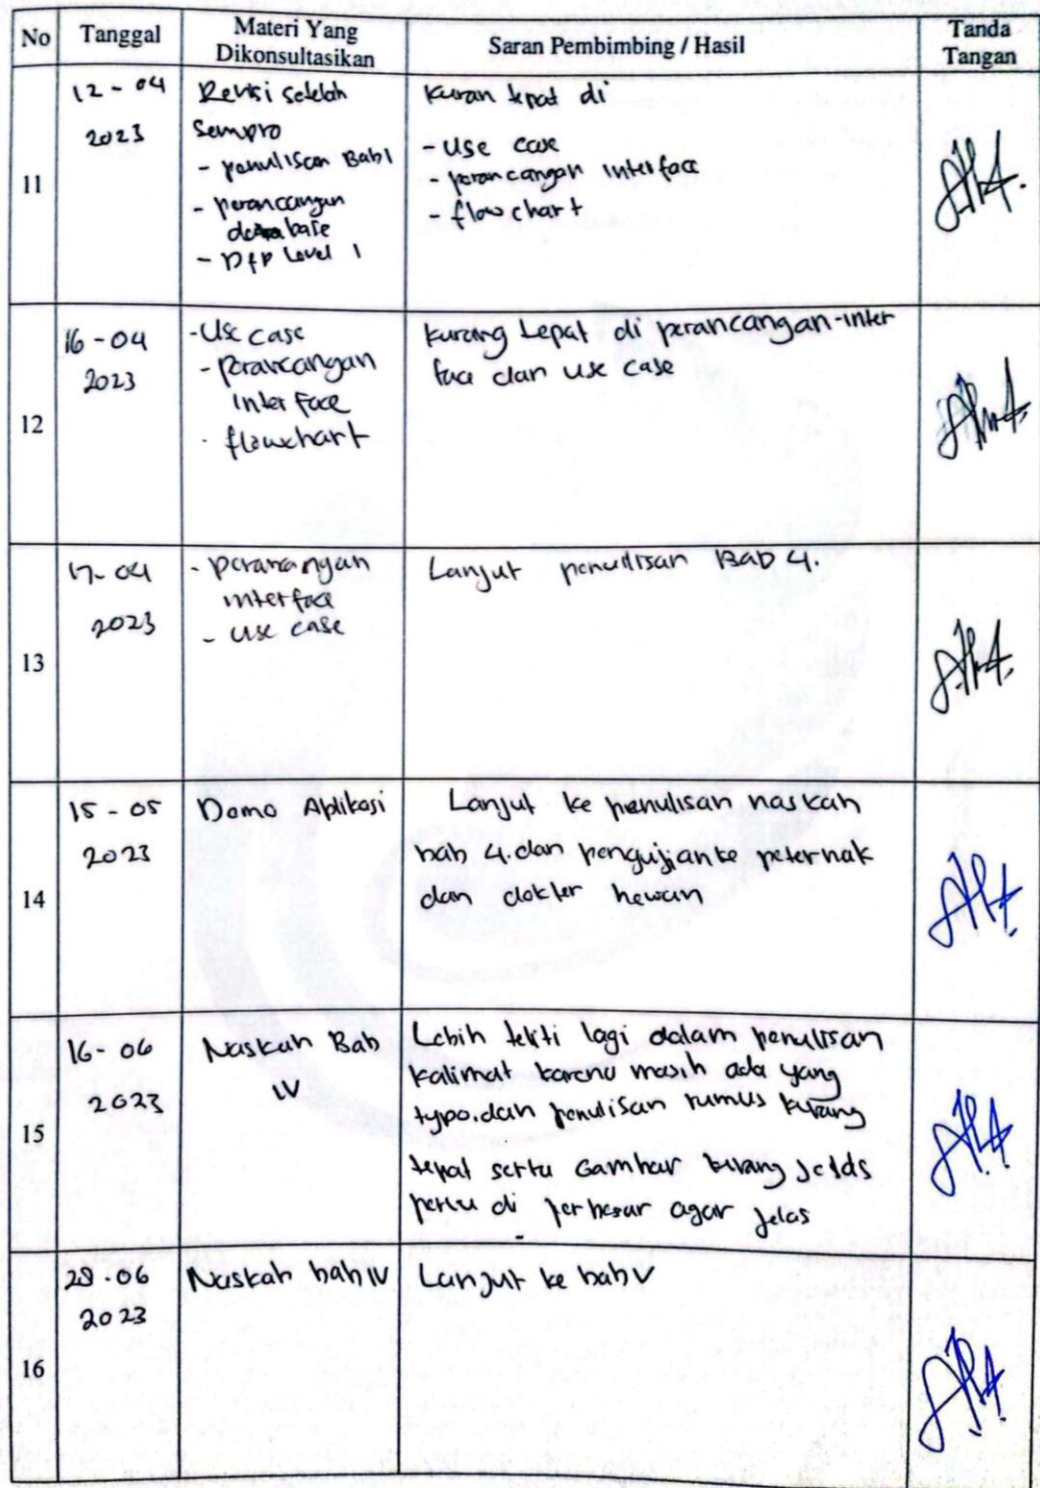 No Tanggal Materi Yang Dikonsultasikan Saran Pembimbing / Hasil Tanda Tangan
11
12 - 04
2023
Revisi setelah
Sempro
- penulisan Bab 1
- perancangan
database
- DFD Level 1
Kuran tepat di
- Use case
- perancangan interface
- flowchart
12
16 - 04
2023
- Use case
- perancangan
interface
- flowchart
Kurang tepat di perancangan-inter
face dan use case
13
17 - 04
2023
- perancangan
interface
- Use case
Lanjut penulisan BAB 4.
14
15 - 05
2023
Demo Aplikasi
Lanjut ke penulisan naskah
bab 4. dan pengujian ke peternak
dan dokter hewan
15
16 - 06
2023
Naskah Bab
IV
Lebih teliti lagi dalam penulisan
kalimat karena masih ada yang
typo. dan penulisan rumus kurang
tepat serta Gambar kurang Jelas
perlu di perbesar agar jelas
16
06
2023
Naskah bab IV
Lanjut ke bab V